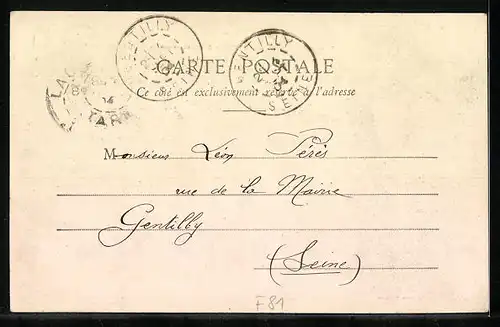 GENTILLY
GENTILLY
SEINE
TARN
CARTE POSTALE
Ce côté est exclusivement réservé à l'adresse
Monsieur Léon Pérès
rue de la Mairie
Gentilly
(Seine)
F81